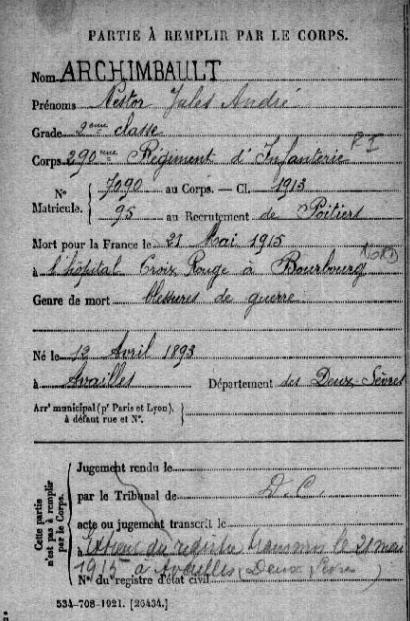 PARTIE À REMPLIR PAR LE CORPS.
Nom ARCHIMBAULT
Prénoms Nestor Jules André
Grade 2eme classe
Corps 290eme Régiment d'Infanterie R I
N° Matricule. { 7090 au Corps. — Cl. 1913
95 au Recrutement de Poitiers
Mort pour la France le 21 Mai 1915
à l'hôpital Croix Rouge à Bourbourg (Nord)
Genre de mort blessures de guerre
Né le 12 Avril 1893
à Availles Département des Deux-Sèvres
Arrt municipal (pr Paris et Lyon), à défaut rue et N°. {
Cette partie n'est pas à remplir par le Corps.
Jugement rendu le
par le Tribunal de D. C.
acte ou jugement transcrit le
à Extrait du registre transmis le 21 mai
1915 à Availles (Deux Sèvres)
N° du registre d'état civil
534-708-1921. [26434.]